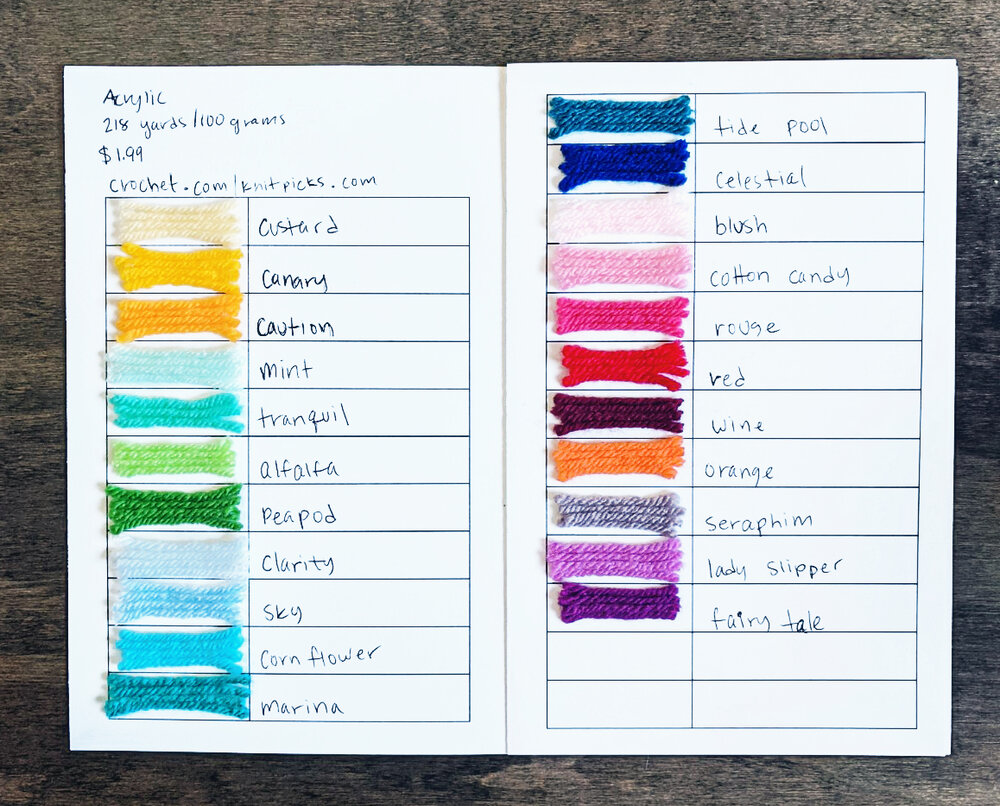 Acrylic
218 yards/100 grams
$1.99
crochet.com/knitpicks.com
custard
canary
caution
mint
tranquil
alfalfa
peapod
clarity
sky
cornflower
marina
tide pool
celestial
blush
cotton candy
rouge
red
wine
orange
seraphim
lady slipper
fairy tale